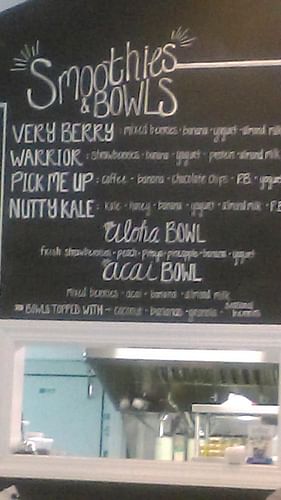 Smoothies
& BOWLS
VERY BERRY : mixed berries - banana - yogurt - almond milk
WARRIOR : strawberries - banana - yogurt - protein - almond milk
PICK ME UP : coffee - banana - chocolate chips - P.B. - yogurt
NUTTY KALE : kale - honey - banana - yogurt - almond milk - P.B
Aloha BOWL
fresh strawberries - peach - pitaya - pineapple - banana - yogurt
acai BOWL
mixed berries - acai - banana - almond milk
BOWLS TOPPED WITH - coconut - bananas - granola - seasonal berries